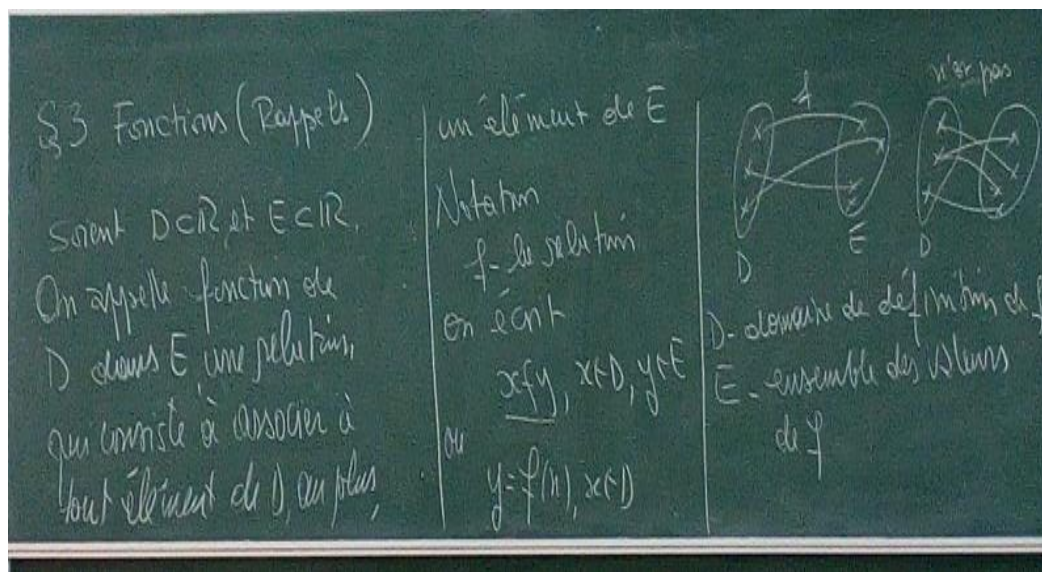 §3 Fonctions (Rappels)
Soient D⊂ℝ et E⊂ℝ.
On appelle fonction de
D dans E une relation,
qui consiste à associer à
tout élément de D, au plus,
un élément de E
Notation
f - la relation
on écrit
xfy, x∈D, y∈E
ou
y=f(x), x∈D
f
D
E
n'est pas
D
D - domaine de définition de f
E - ensemble des valeurs
de f